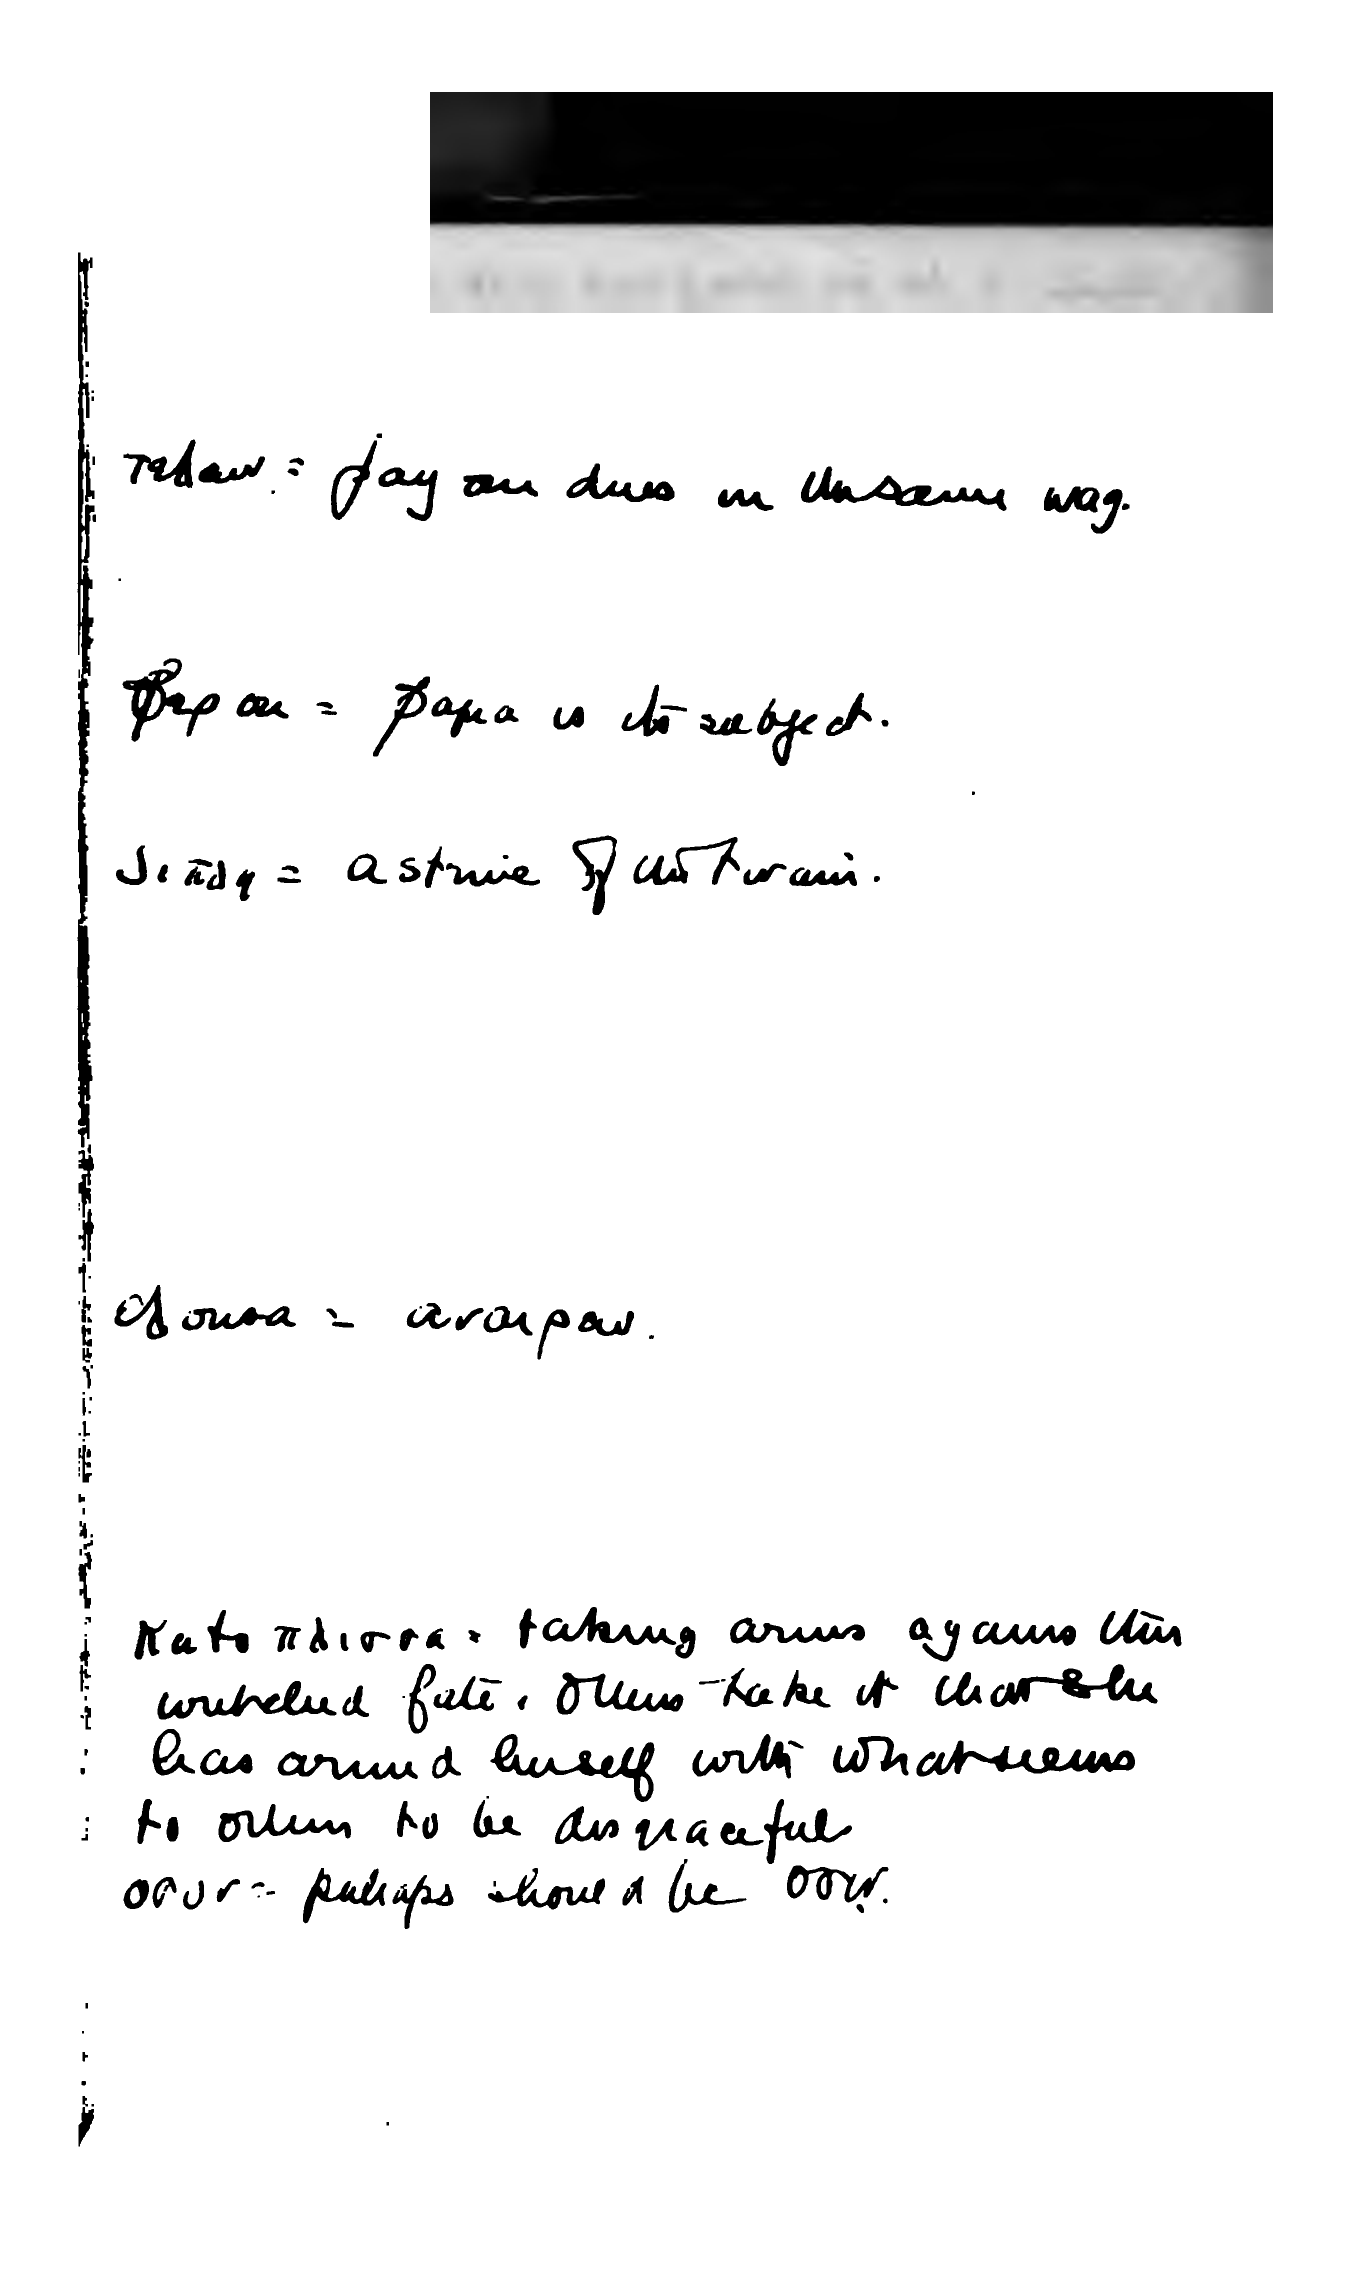 τελειν = pay our dues in the same way.
φερ = papa is the subject.
διπλη = a strike of the twain.
= αναιρ
καθοπλισ = taking arms against this
wretched fate. Others take it that she
has armed herself with what seems
to others to be disgraceful
οσον = perhaps should be